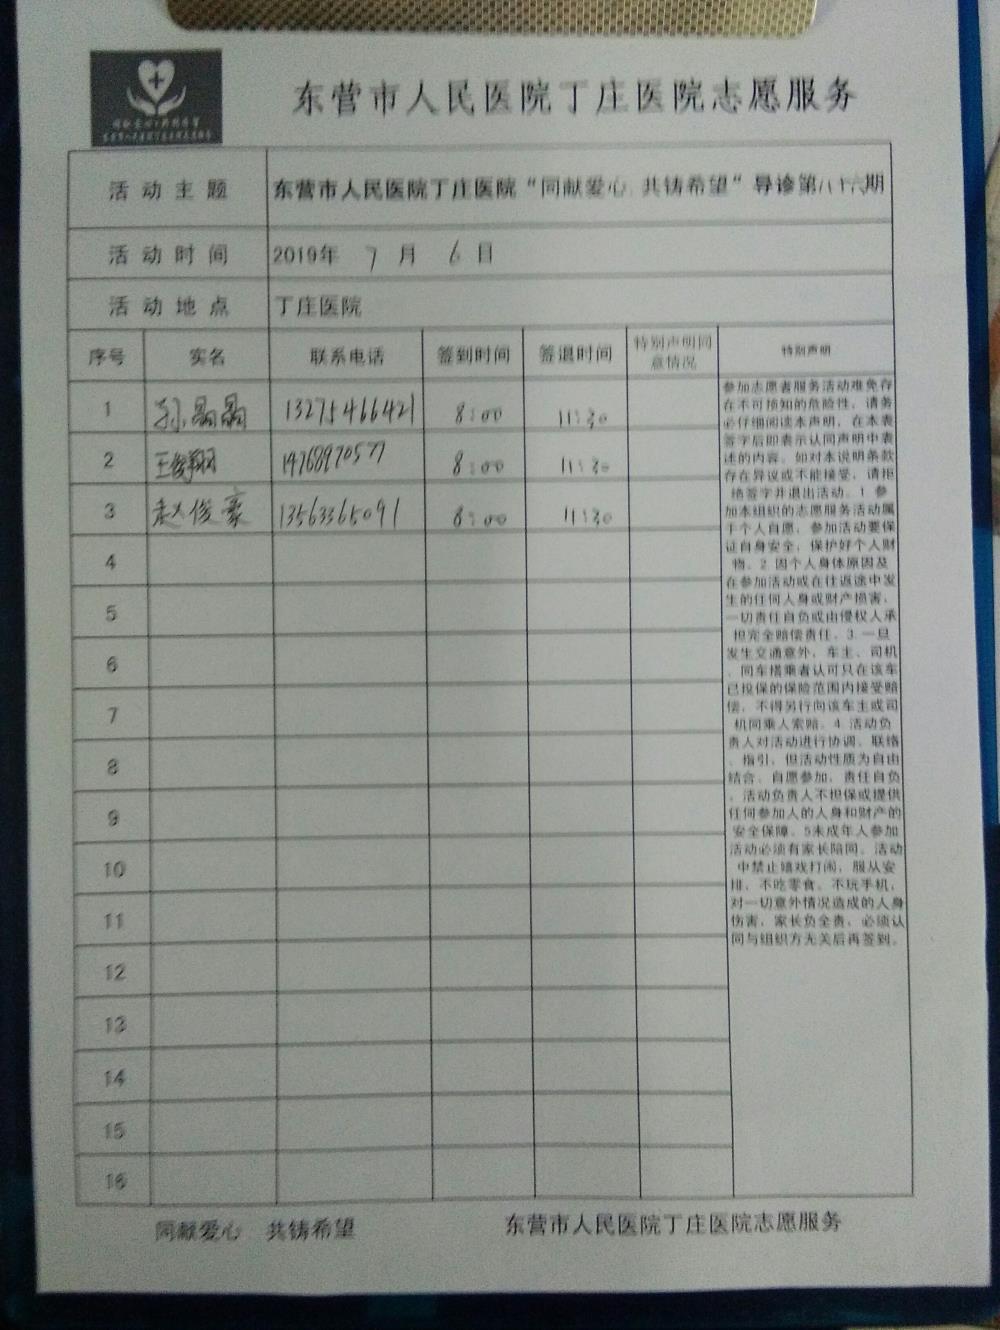 东营市人民医院丁庄医院志愿服务
活动主题 东营市人民医院丁庄医院“同献爱心 共铸希望”导诊第八十六期
活动时间 2019年 7 月 6 日
活动地点 丁庄医院
序号 实名 联系电话 签到时间 签退时间 特别声明同意情况 特别声明
1 孙晶晶 13275466421 8:00 11:30
2 王俊翔 14768970577 8:00 11:30
3 赵俊豪 13563365091 8:00 11:30
4
5
6
7
8
9
10
11
12
13
14
15
16
参加志愿者服务活动难免存
在不可预知的危险性，请务
必仔细阅读本声明，在本表
签字后即表示认同声明中表
述的内容。如对本说明条款
存在异议或不能接受，请拒
绝签字并退出活动。1 参
加本组织的志愿服务活动属
于个人自愿，参加活动要保
证自身安全，保护好个人财
物。2 因个人身体原因及
在参加活动或在往返途中发
生的任何人身或财产损害，
一切责任自负或由侵权人承
担完全赔偿责任。3 一旦
发生交通意外，车主、司机
、同车搭乘者认可只在该车
已投保的保险范围内接受赔
偿，不得另行向该车主或司
机同乘人索赔。4 活动负
责人对活动进行协调、联络
、指引，但活动性质为自由
结合、自愿参加，责任自负
，活动负责人不担保或提供
任何参加人的人身和财产的
安全保障。5未成年人参加
活动必须有家长陪同。活动
中禁止嬉戏打闹，服从安
排，不吃零食，不玩手机，
对一切意外情况造成的人身
伤害，家长负全责，必须认
同与组织方无关后再签到。
同献爱心 共铸希望 东营市人民医院丁庄医院志愿服务